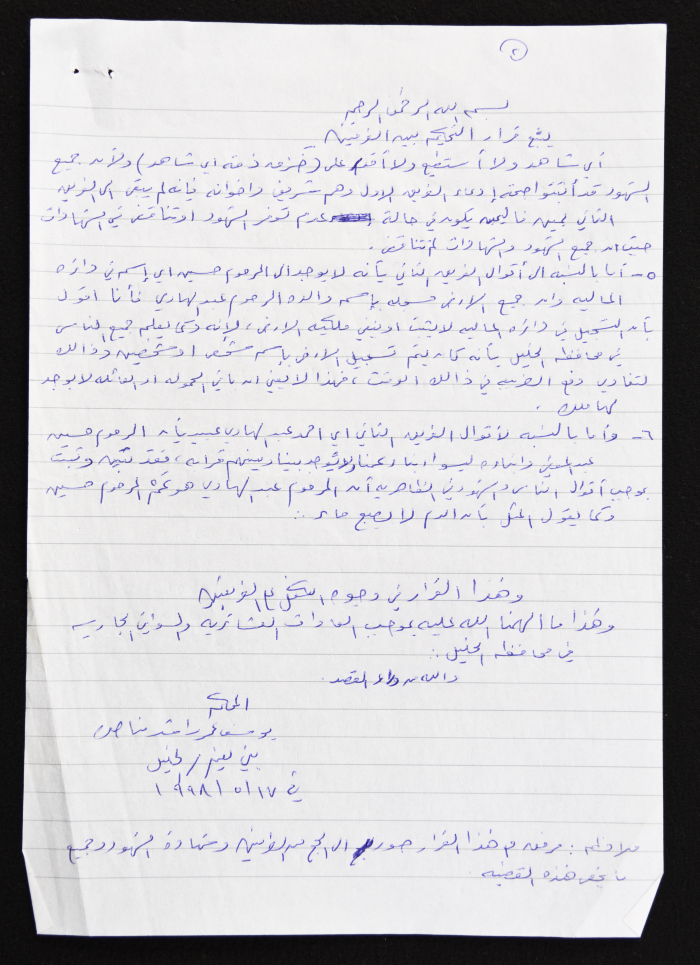 ٢
بسم الله الرحمن الرحيم
يتبع قرار التحكيم بين الفريقين
أي شاهد ولا أستطيع ولا أقدر على (خزق ذمة أي شاهد) ولأن جميع
الشهود قد أثبتوا صحة إدعاء الفريق الاول وهم شريف واخوانه فإنه لم يبقى الى الفريق
الثاني يمين فاليمين يكون في حالة عدم توفر الشهود او تناقض في الشهادات
حيث ان جميع الشهود والشهادات لم تتناقض.
٥- أما بالنسبة الى أقوال الفريق الثاني بأنه لا يوجد الى المرحوم حسين اي إسم في دائرة
المالية وان جميع الارض مسجله بإسم والده المرحوم عبد الهادي فأنا اقول
بأن التسجيل في دائرة المالية لا يثبت او ينفي ملكية الارض، لإنه وكما يعلم جميع الناس
في محافظة الخليل بأنه كان يتم تسجيل الارض بإسم شخص او شخصين وذالك
لتفادي دفع الضريبه في ذالك الوقت، فهذا لا يعني ان باقي الحموله او العائله لا يوجد
لها ملك.
٦- وأما بالنسبه لأقوال الفريق الثاني اي احمد عبد الهادي عبيد بأن المرحوم حسين
عبد المعطي وابناءه ليسوا ابناء عمنا ولا يوجد بيننا وبينهم قرابه، فقد تبين وثبت
بموجب أقوال الناس والشهود في الظاهرية أن المرحوم عبد الهادي هو عم المرحوم حسين
وكما يقول المثل بأن الدم لا يصبح ماء.
وهذا القرار في وجوه الفريقين
وهذا ما ألهمنا الله عليه بموجب العادات العشائريه والسواني الجاريه
في محافظة الخليل.
والله من وراء القصد.
الحكم
يوسف راشد مناصره
بني نعيم / الخليل
في ١٩٩٨/٥/١٧
ملاحظه: مرفق مع هذا القرار صور الى الحجج من الفريقين وشهادة الشهود وجميع
ما يخص هذه القضيه